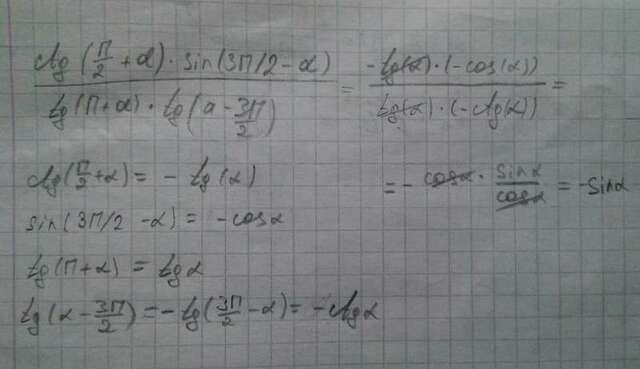 ctg(π/2 + α) · sin(3π/2 - α) / tg(π+α) · tg(a - 3π/2) = -tg(α) · (-cos(α)) / tg(α) · (-ctg(α)) =
= - cosα · sinα/cosα = -sinα
ctg(π/2 + α) = - tg(α)
sin(3π/2 - α) = -cosα
tg(π+α) = tgα
tg(α - 3π/2) = -tg(3π/2 - α) = -ctgα